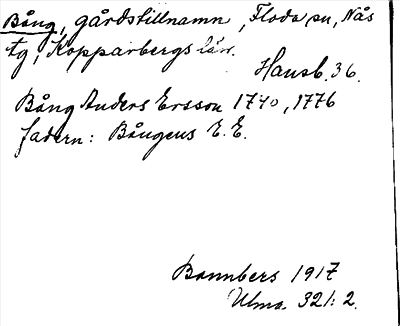 Bång, gårdstillnamn, Floda sn, Nås
tg, Kopparbergs län.
Hausb. 36.
Bång Anders Ersson 1740, 1776
fadern: Bångens E. E.
Bannbers 1917
Ulma 321: 2.